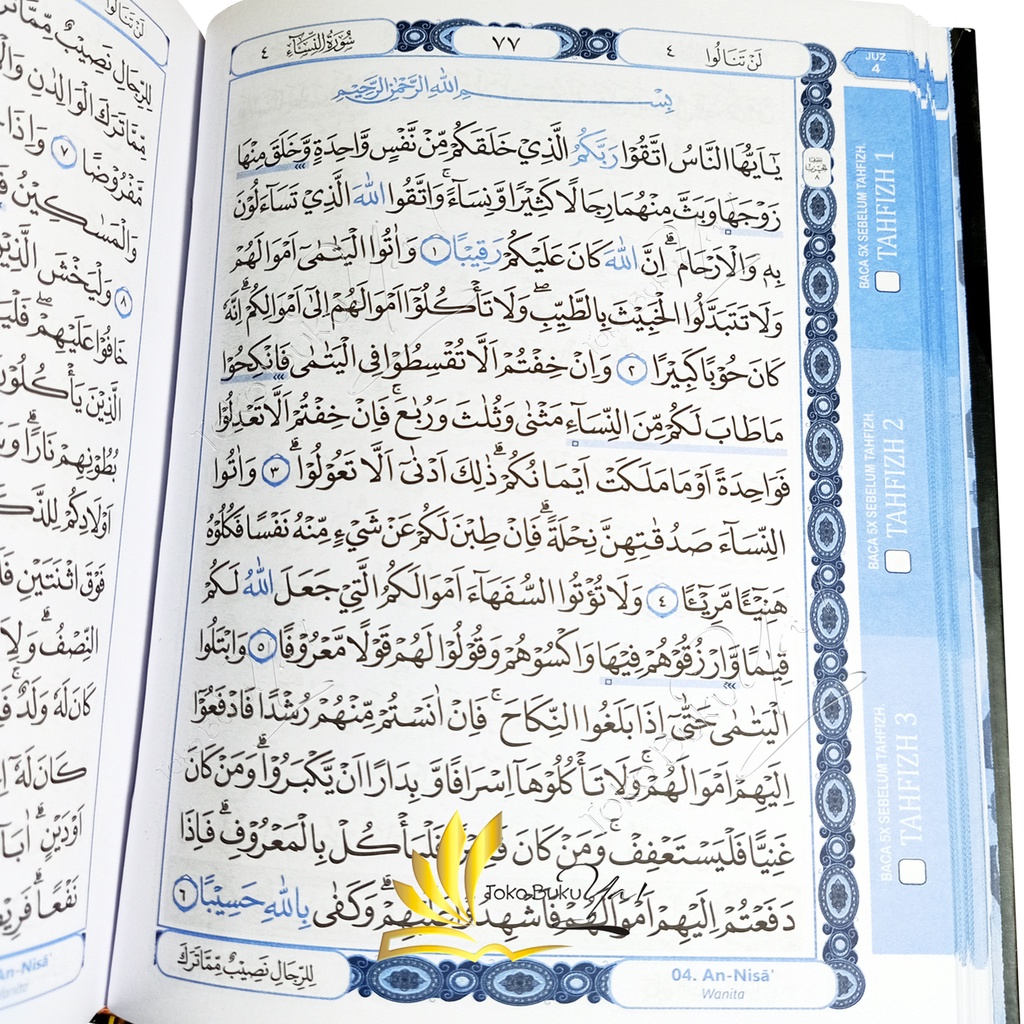 سُوْرَةُ النِّسَاۤءِ ٤
٧٧
لَنْ تَنَالُوْا ٤
بِسْمِ اللّٰهِ الرَّحْمٰنِ الرَّحِيْمِ
يٰٓاَيُّهَا النَّاسُ اتَّقُوْا رَبَّكُمُ الَّذِيْ خَلَقَكُمْ مِّنْ نَّفْسٍ وَّاحِدَةٍ وَّخَلَقَ مِنْهَا
زَوْجَهَا وَبَثَّ مِنْهُمَا رِجَالًا كَثِيْرًا وَّنِسَاۤءً ۚ وَاتَّقُوا اللّٰهَ الَّذِيْ تَسَاۤءَلُوْنَ
بِهٖ وَالْاَرْحَامَ ۗ اِنَّ اللّٰهَ كَانَ عَلَيْكُمْ رَقِيْبًا ١ وَاٰتُوا الْيَتٰمٰٓى اَمْوَالَهُمْ
وَلَا تَتَبَدَّلُوا الْخَبِيْثَ بِالطَّيِّبِ ۖ وَلَا تَأْكُلُوْٓا اَمْوَالَهُمْ اِلٰٓى اَمْوَالِكُمْ ۗ اِنَّهٗ
كَانَ حُوْبًا كَبِيْرًا ٢ وَاِنْ خِفْتُمْ اَلَّا تُقْسِطُوْا فِى الْيَتٰمٰى فَانْكِحُوْا
مَا طَابَ لَكُمْ مِّنَ النِّسَاۤءِ مَثْنٰى وَثُلٰثَ وَرُبٰعَ ۚ فَاِنْ خِفْتُمْ اَلَّا تَعْدِلُوْا
فَوَاحِدَةً اَوْ مَا مَلَكَتْ اَيْمَانُكُمْ ۗ ذٰلِكَ اَدْنٰٓى اَلَّا تَعُوْلُوْا ۗ ٣ وَاٰتُوا
النِّسَاۤءَ صَدُقٰتِهِنَّ نِحْلَةً ۗ فَاِنْ طِبْنَ لَكُمْ عَنْ شَيْءٍ مِّنْهُ نَفْسًا فَكُلُوْهُ
هَنِيْۤـًٔا مَّرِيْۤـًٔا ٤ وَلَا تُؤْتُوا السُّفَهَاۤءَ اَمْوَالَكُمُ الَّتِيْ جَعَلَ اللّٰهُ لَكُمْ
قِيٰمًا وَّارْزُقُوْهُمْ فِيْهَا وَاكْسُوْهُمْ وَقُوْلُوْا لَهُمْ قَوْلًا مَّعْرُوْفًا ٥ وَابْتَلُوا
الْيَتٰمٰى حَتّٰىٓ اِذَا بَلَغُوا النِّكَاحَ ۚ فَاِنْ اٰنَسْتُمْ مِّنْهُمْ رُشْدًا فَادْفَعُوْٓا
اِلَيْهِمْ اَمْوَالَهُمْ ۚ وَلَا تَأْكُلُوْهَآ اِسْرَافًا وَّبِدَارًا اَنْ يَّكْبَرُوْا ۗ وَمَنْ كَانَ
غَنِيًّا فَلْيَسْتَعْفِفْ ۚ وَمَنْ كَانَ فَلْيَأْكُلْ بِالْمَعْرُوْفِ ۗ فَاِذَا
دَفَعْتُمْ اِلَيْهِمْ اَمْوَالَهُمْ فَاَشْهِدُوْا عَلَيْهِمْ ۗ وَكَفٰى بِاللّٰهِ حَسِيْبًا ٦
لِلرِّجَالِ نَصِيْبٌ مِّمَّا تَرَكَ
04. An-Nisā'
Wanita
JUZ
4
BACA 5X SEBELUM TAHFIZH.
TAHFIZH 1
BACA 5X SEBELUM TAHFIZH.
TAHFIZH 2
BACA 5X SEBELUM TAHFIZH.
TAHFIZH 3
Toko Buku
لَنْ تَنَالُوْا
لِلرِّجَالِ نَصِيْبٌ مِّمَّا
مِّمَّا تَرَكَ الْوَالِدٰنِ
مَّفْرُوْضًا ٧ وَاِذَا
وَالْمَسٰكِيْنُ
٨ وَلْيَخْشَ الَّذِيْنَ
خَافُوْا عَلَيْهِمْ ۖ
الَّذِيْنَ يَأْكُلُوْنَ
بُطُوْنِهِمْ نَارًا ۗ
اَوْلَادِكُمْ
فَوْقَ اثْنَتَيْنِ
النِّصْفُ ۗ
كَانَ لَهٗ وَلَدٌ ۚ
كَانَ لَهٗٓ
اَوْ دَيْنٍ ۗ
نَفْعًا ۗ
An-Nisā'
Wanita